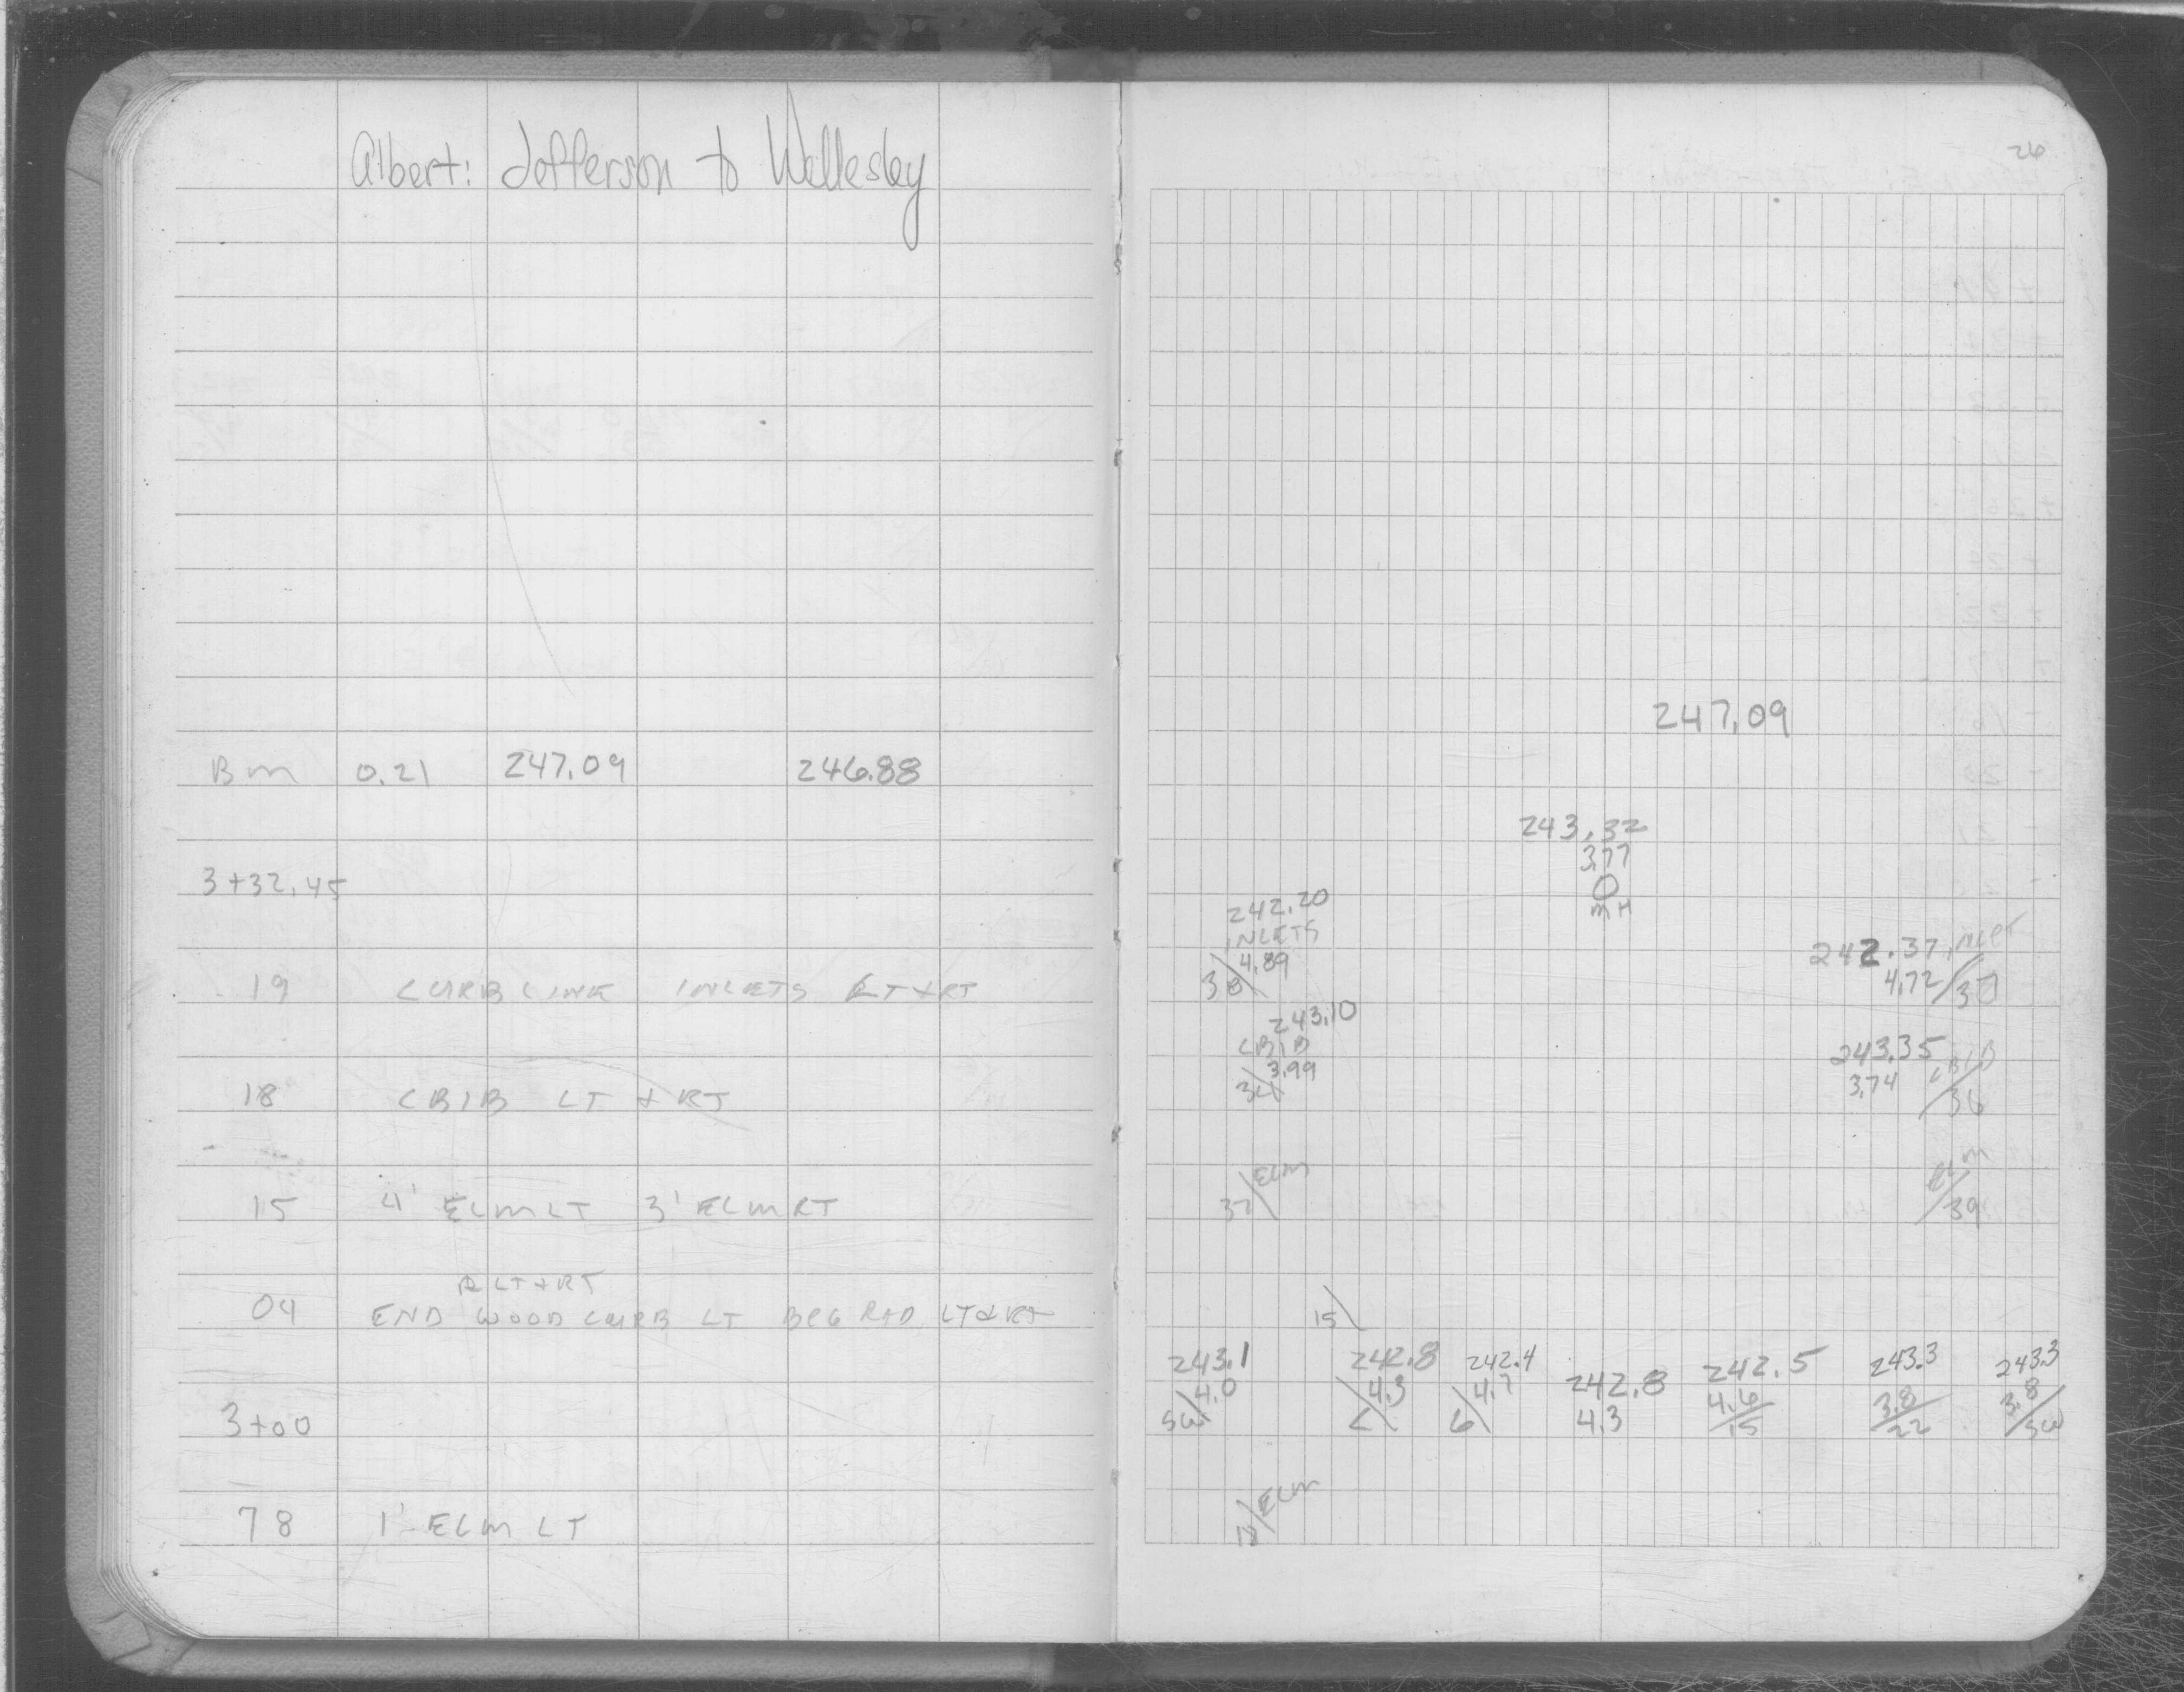 Albert: Jefferson to Wellesley
Bm 0.21 247.09 246.88
3+32.45
19 CURB LINE INLETS LT & RT
18 CBIB LT & RT
15 4' ELM LT 3' ELM RT
R LT & RT
04 END WOOD CURB LT BEG RAD LT & RT
3+00
78 1' ELM LT
26
247.09
243.32
3.77
MH
242.20
INLETS
4.89
38
242.37 INLET
4.72
37
243.10
CBIB
3.99
243.35 CBIB
3.74 36
ELM
37
ELM
39
15
243.1 242.8 242.4 242.8 242.5 243.3 243.3
4.0 4.3 4.7 4.3 4.6 3.8 3.8
SW 15 22 SW
ELM